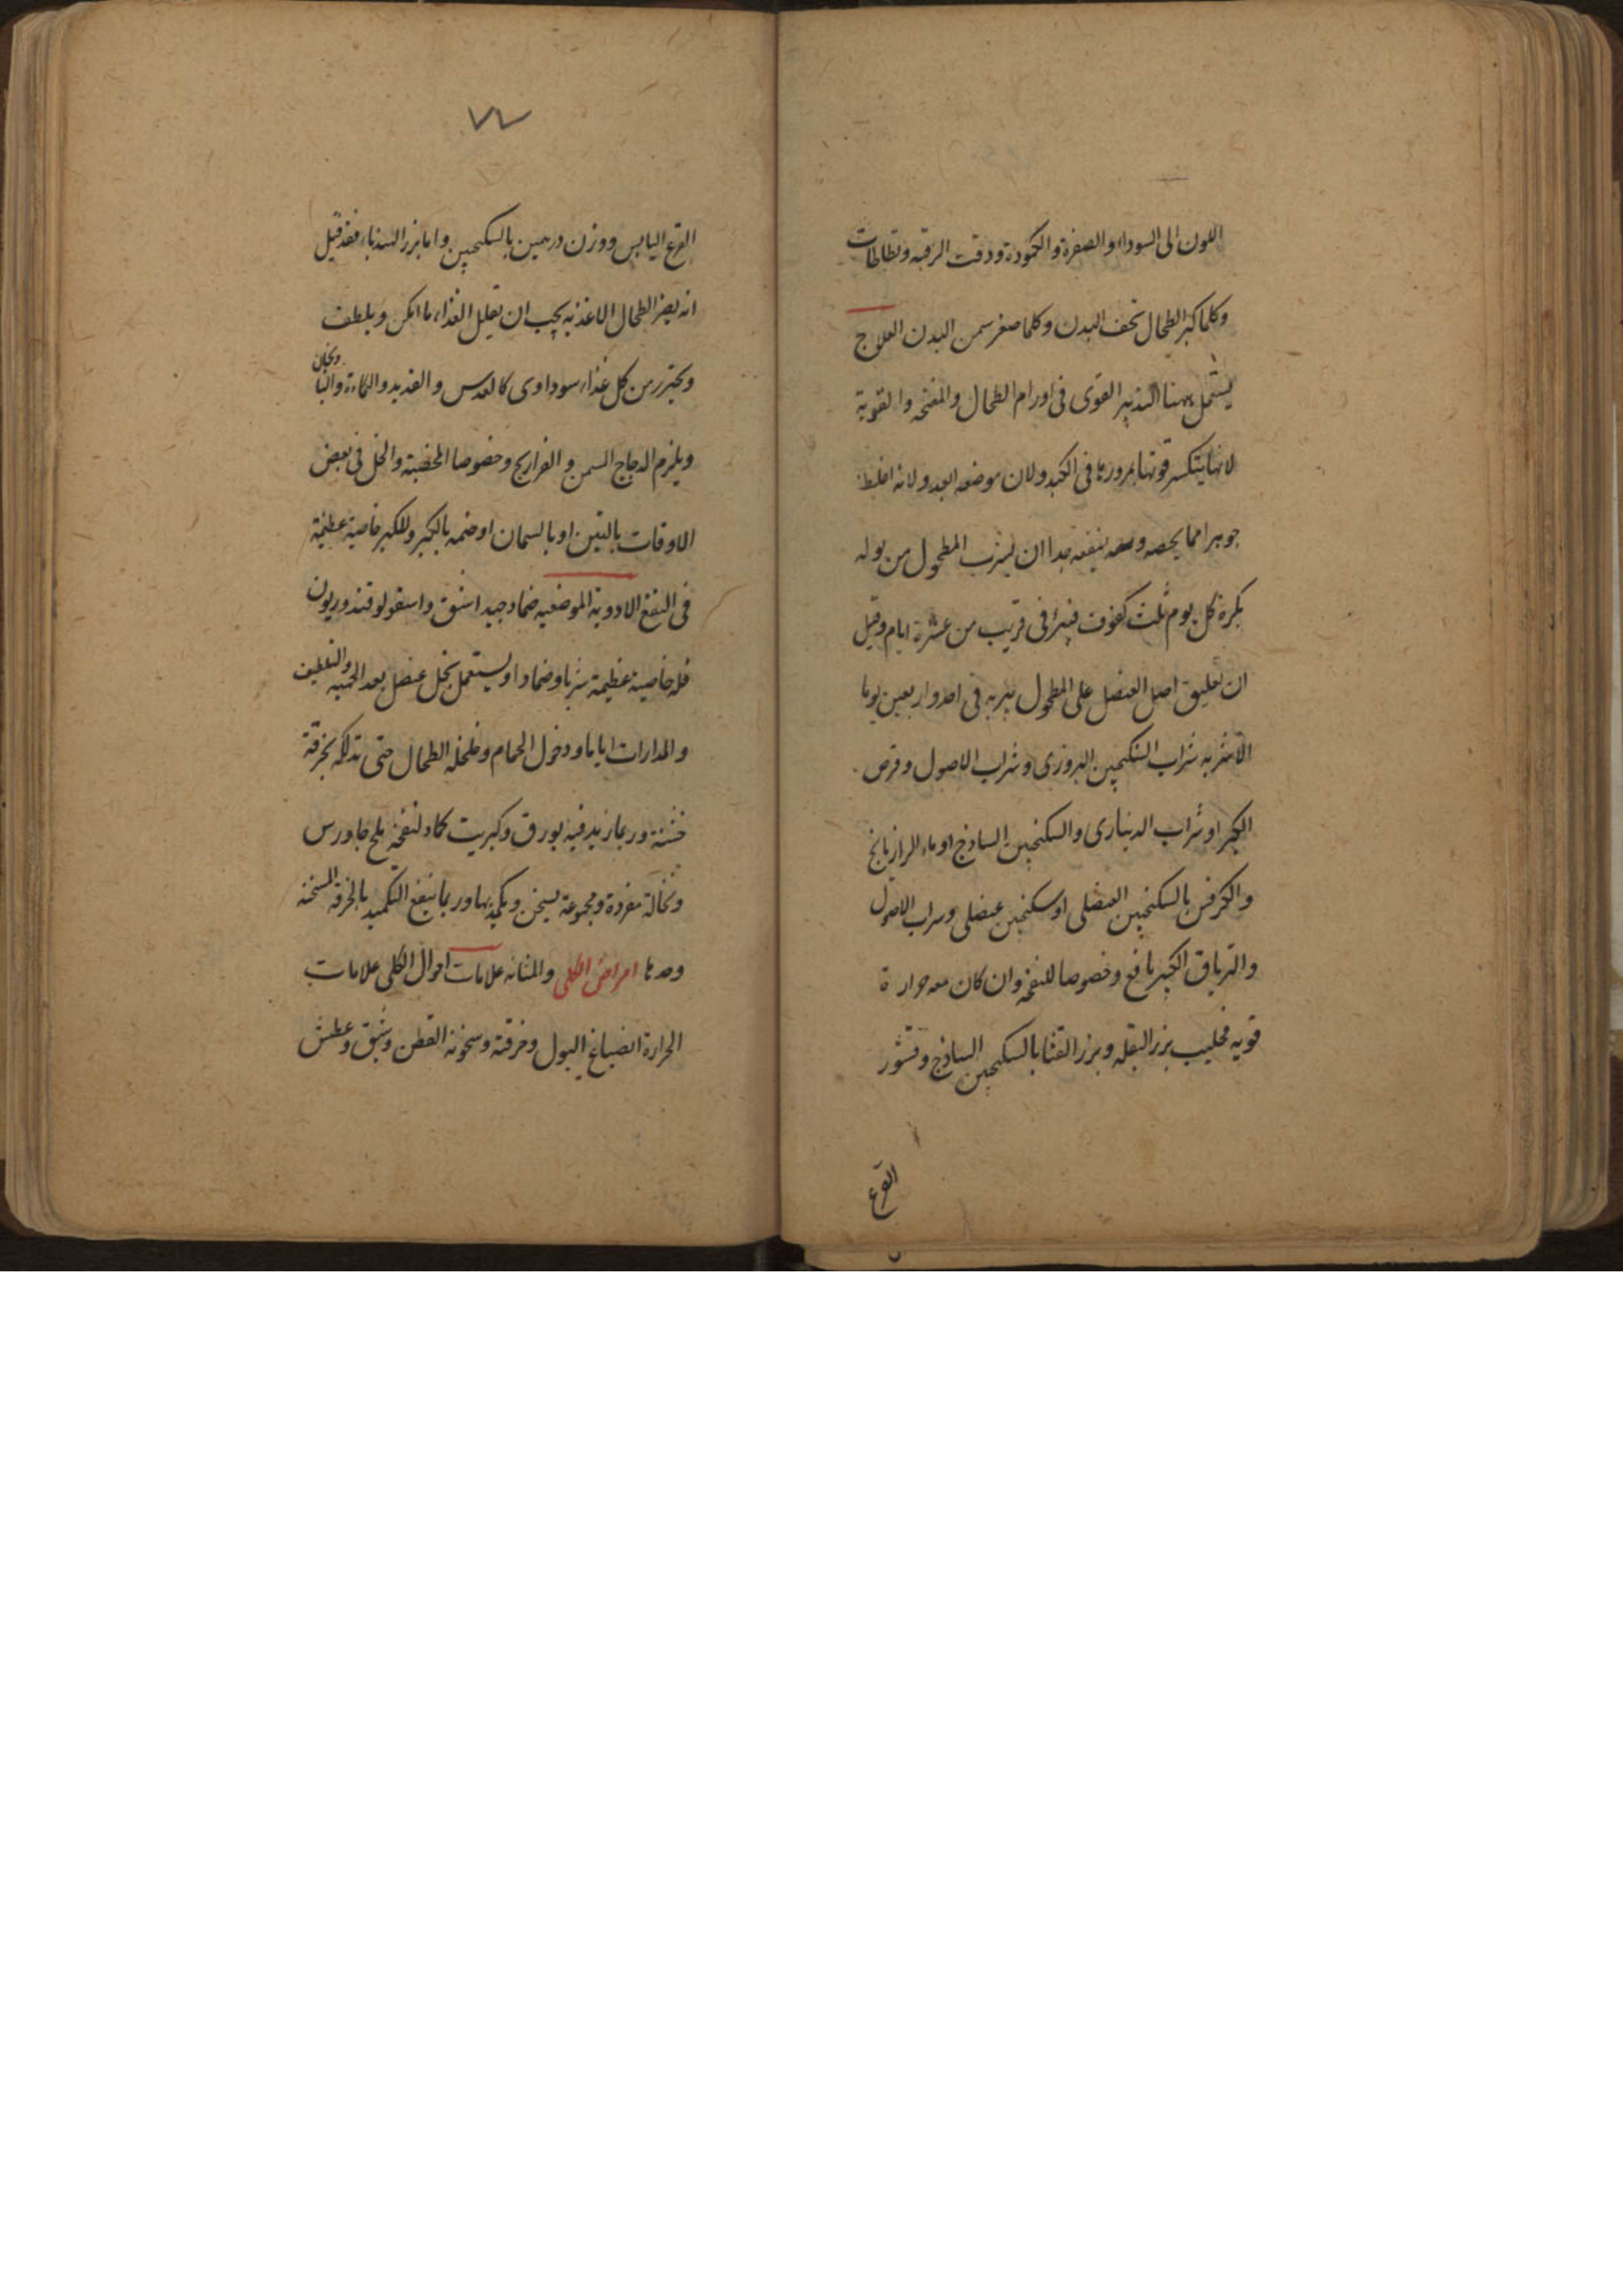 اللون الى السواد او الصفرة والكمودة ودقت الرقبة وتطاطات
وكلما كبر الطحال نحف البدن وكلما صغر سمن البدن العلاج
يستعمل ههنا التدبير القوى فى اورام الطحال والمفتحه والقوية
لانها ينكسر قوتها بمرورها فى الكبد ولان موضعه ابعد ولانه اغلظ
جوهرا مما يخصه ينفعه جدا ان يشرب المطحول من بوله
بكرة كل يوم ثلث كفوف فيبرئ فى قريب من عشرة ايام وقيل
ان تعليق اصل العنصل على المطحول يبريه فى احد واربعين يوما
الاشربه شراب السكنجبين البزورى وشراب الاصول وقرص
الكبر او شراب الدينارى والسكنجبين الساذج او ماء الرازيانج
والكرفس بالسكنجبين العنصلى او سكنجبين عنصلى وشراب الاصول
والترياق الكبير نافع وخصوصا للنفخه وان كان معه حرارة
قويه فحليب بزر البقله وبزر القثا بالسكنجبين الساذج وقشور
القرع
٧٧
القرع اليابس ووزن درهمين بالسكنجبين واما بزر الهندباء فقد قيل
انه يضر الطحال الاغذيه يجب ان يقلل الغذاء ما امكن ويلطف
ويحترز من كل غذاء سوداوى كالعدس والقديد والكماءة والبا
ذنجان
ويلزم الدجاج السمن والفراريج وخصوصا المخصبة والخل فى بعض
الاوقات بالتين او بالسمان او ضمه بالكبر وللكبر خاصية عظيمة
فى النفع الادوية الموضعيه ضماد جيد اشق واسقولوقندوريون
فله خاصية عظيمة شربا وضمادا ويستعمل بخل عنصل بعد الحميه والتلطيف
والمدارات اياما ودخول الحمام وخلخله الطحال حتى تدلكه بخرقة
خشنة وربما زيد فيه بورق وكبريت كماد لنفخة ملح جاورس
ونخالة مفردة ومجموعة يسخن ويكمد بها وربما ينفع التكميد بالخرقه المسخنة
وحدها امراض الكلى والمثانه علامات احوال الكلى علامات
الحرارة انصباغ البول وحرقته وسخونة القطن وشبق وعطش